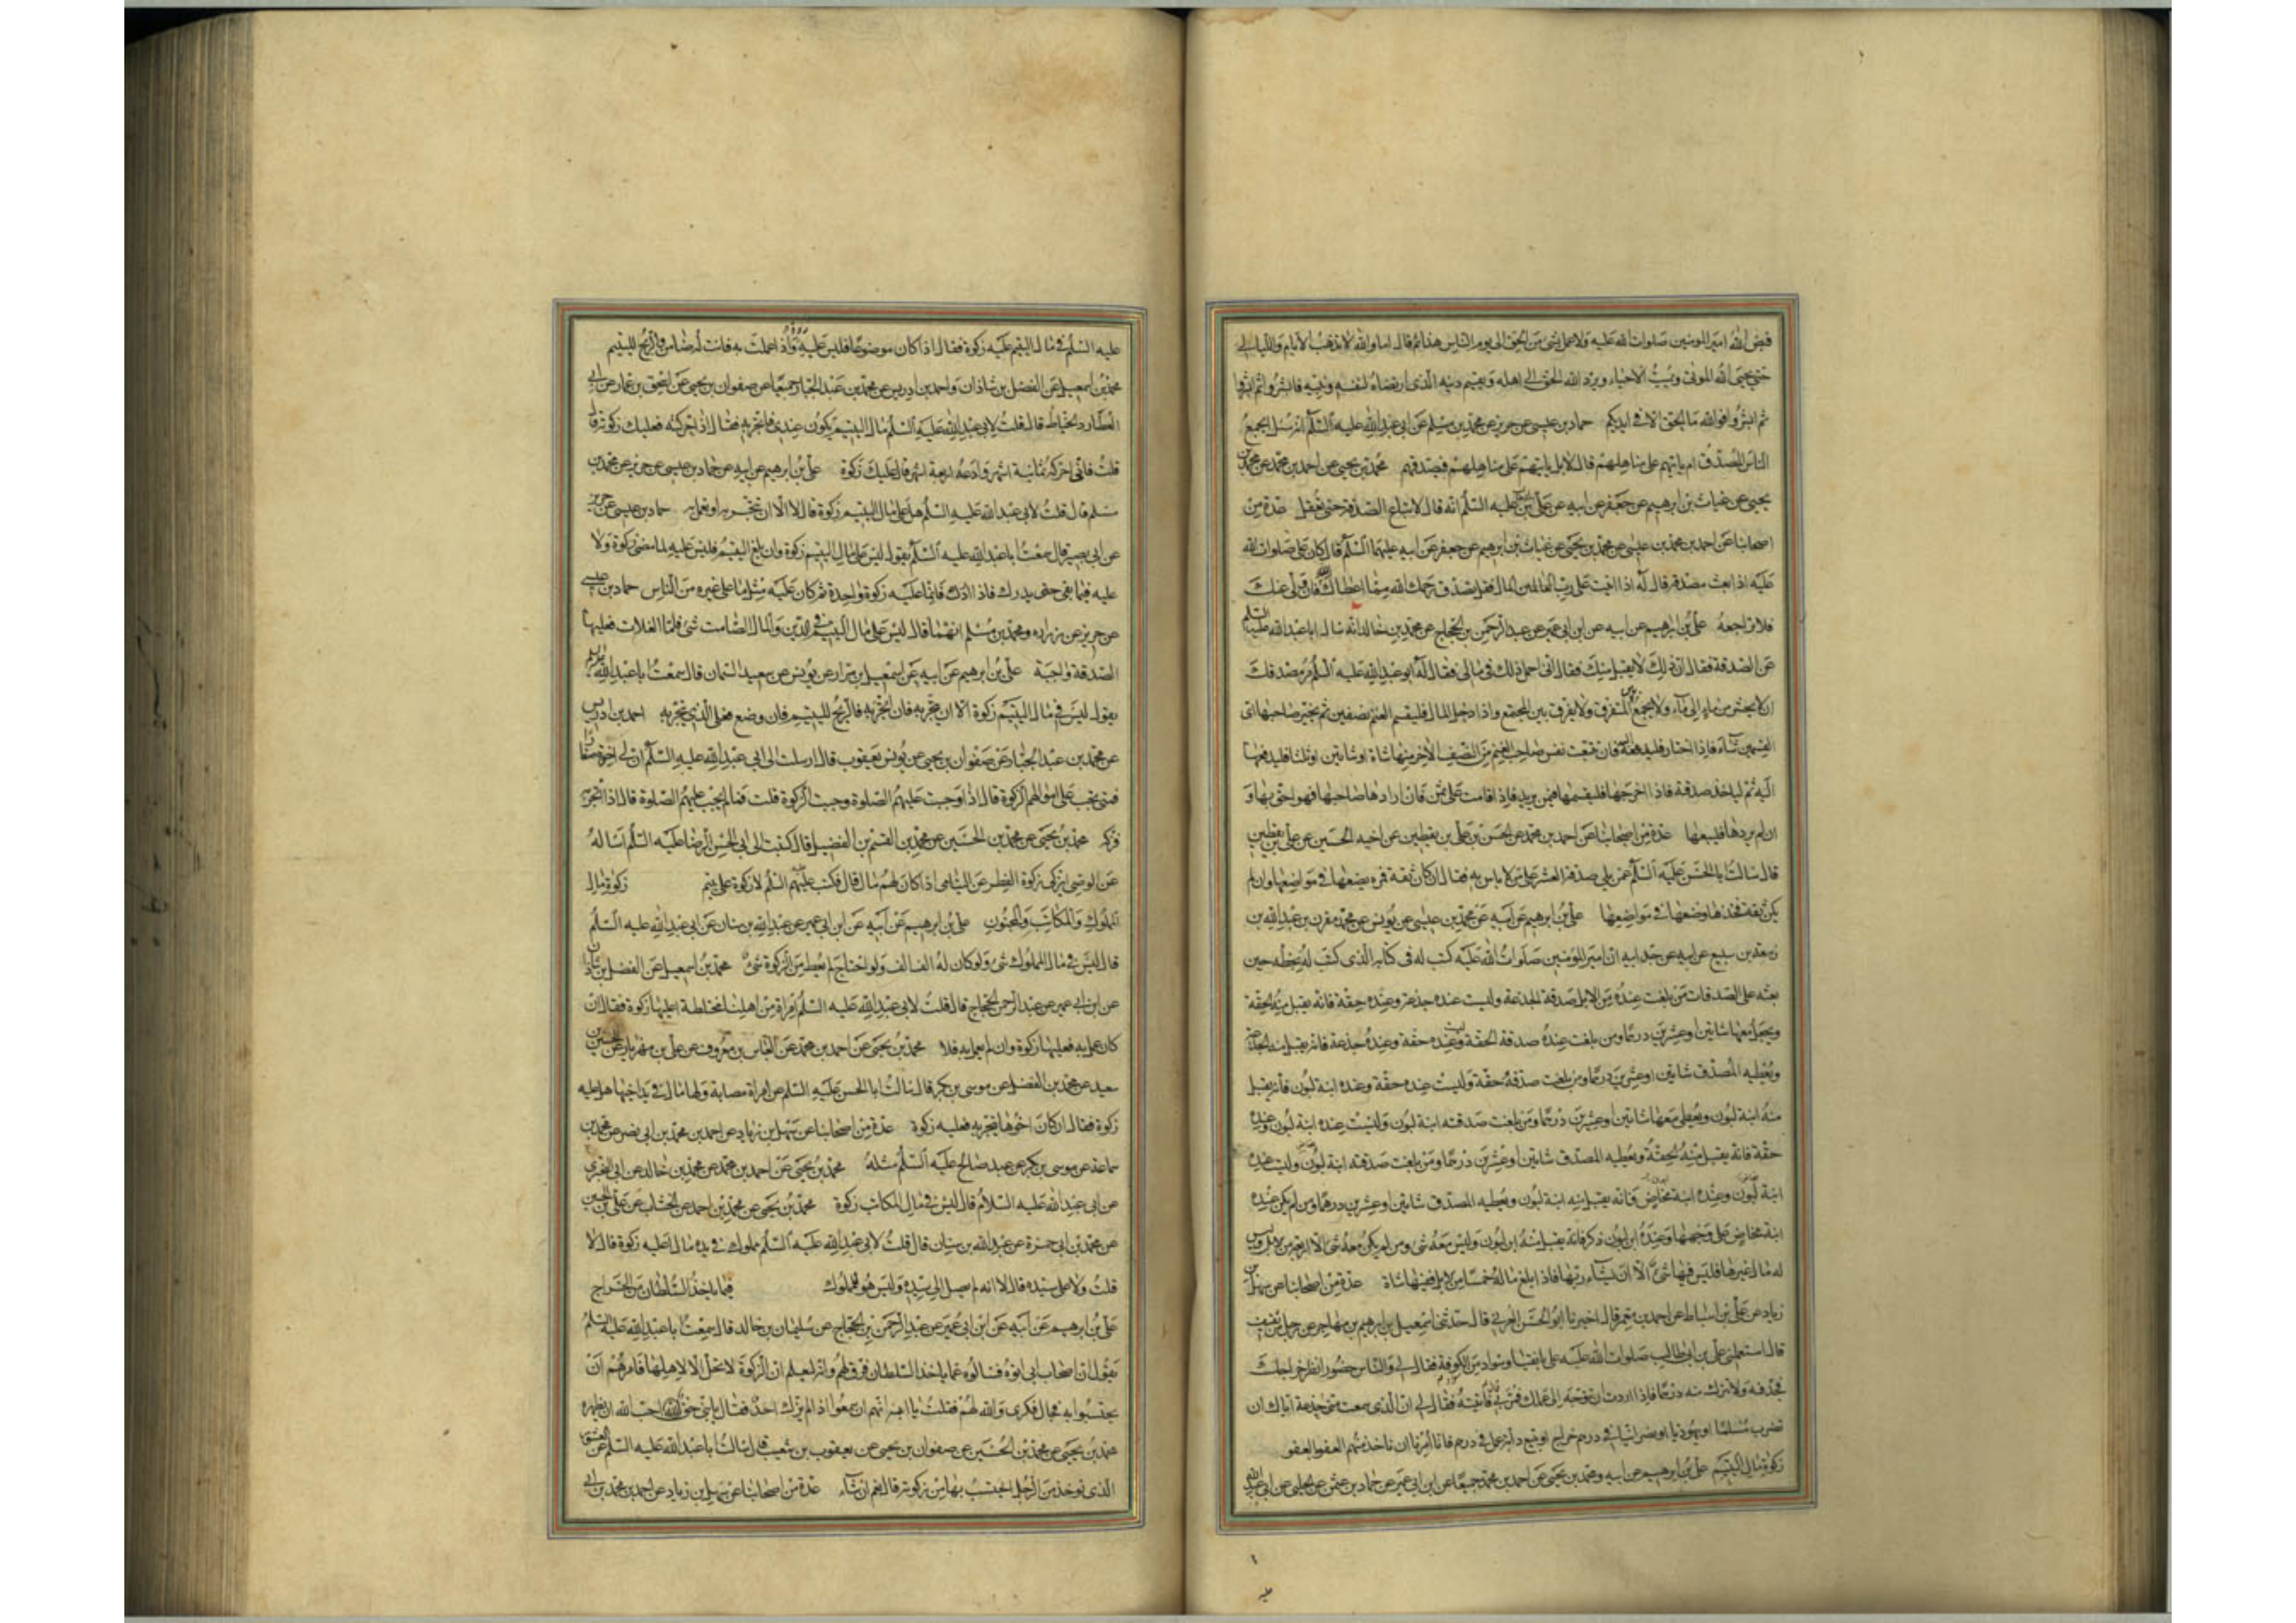 قبض الله امير المومنين صلوات الله عليه ولا عمل بشئ من الحق الى يوم الناس هذا ثم قال اما والله لا تذهب الايام والليالى
حتى يحيى الله الموتى ويميت الاحياء ويرد الله الحق الى اهله ويقيم دينه الذى ارتضاه لنفسه ونبيه فابشروا ثم ابشروا
ثم ابشروا فوالله ما الحق الا فى ايديكم حماد بن عيسى عن حريز عن محمد بن مسلم عن ابى عبد الله عليه السلم انه سئل ايجمع
الناس المصدق ام ياتيهم على مناهلهم قال لا بل ياتيهم على مناهلهم فيصدقهم محمد بن يحيى عن احمد بن محمد عن محمد بن
يحيى عن غياث بن ابرهيم عن جعفر عن ابيه عن على عليه السلم انه قال لا تباع الصدقة حتى تعقل عدة من
اصحابنا عن احمد بن محمد بن عيسى عن محمد بن يحيى عن غياث بن ابرهيم عن جعفر عن ابيه عليهما السلم قال كان على صلوات الله
عليه اذا بعث مصدقه قال له اذا اتيت على رب المال فقل تصدق رحمك الله مما اعطاك الله فان ولى عنك
فلا تراجعه على بن ابرهيم عن ابيه عن ابن ابى عمير عن عبد الرحمن بن الحجاج عن محمد بن خالد انه سال ابا عبد الله عليه السلم
عن الصدقة فقال ان ذلك لا يقبل منك فقال انى احمل ذلك فى مالى فقال له ابو عبد الله عليه السلم مر مصدقك
ان لا يحشر من ماء الى ماء ولا يجمع بين المتفرق ولا يفرق بين المجتمع واذا دخل المال فليقسم الغنم نصفين ثم يخير صاحبها اى
القسمين شاء فاذا اختار فليدفعه اليه فان تتبعت نفس صاحب الغنم من النصف الاخر منها شاة او شاتين او ثلثا فليدفعها
اليه ثم لياخذ صدقته فاذا اخرجها فليقسمها فيمن يريد فاذا قامت على ثمن فان ارادها صاحبها فهو احق بها و
ان لم يردها فليبعها عدة من اصحابنا عن احمد بن محمد عن الحسن بن على بن يقطين عن اخيه الحسين عن على بن يقطين
قال سالت ابا الحسن عليه السلم عمن يلى صدقة العشر على من لا باس به فقال ان كان ثقة فمره يضعها فى مواضعها وان لم
يكن ثقة فخذها وضعها فى مواضعها على بن ابرهيم عن ابيه عن محمد بن عيسى عن يونس عن محمد بن مقرن بن عبد الله بن
زمعة بن سبيع عن ابيه عن جده ابيه ان امير المؤمنين صلوات الله عليه كتب له فى كتابه الذى كتب له بخطه حين
بعثه على الصدقات من بلغت عنده من الابل صدقة الجذعة وليست عنده جذعة وعنده حقة فانه يقبل منه الحقة
ويجعل معها شاتين او عشرين درهما ومن بلغت عنده صدقة الحقة وليست عنده حقة وعنده جذعة فانه يقبل منه الجذعة
ويعطيه المصدق شاتين او عشرين درهما ومن بلغت صدقته حقة وليست عنده حقة وعنده ابنة لبون فانه يقبل
منه ابنة لبون ويعطى معها شاتين او عشرين درهما ومن بلغت صدقته ابنة لبون وليست عنده ابنة لبون وعنده
حقة فانه يقبل منه الحقة ويعطيه المصدق شاتين او عشرين درهما ومن بلغت صدقته ابنة لبون وليست عنده
ابنة لبون وعنده ابنة مخاض فانه يقبل منه ابنة لبون ويعطيه المصدق شاتين او عشرين درهما ومن لم يكن عنده
ابنة مخاض على وجهها وعنده ابن لبون ذكر فانه يقبل منه ابن لبون وليس معه شئ ومن لم يكن معه شئ الا اربعة من الابل وليس
له مال غيرها فليس فيها شئ الا ان يشاء ربها فاذا بلغ ماله خمسا من الابل ففيها شاة عدة من اصحابنا عن سهل بن
زياد عن على بن اسباط عن احمد بن معمر قال اخبرنا ابو الحسن العرنى قال حدثنى اسمعيل بن ابرهيم بن مهاجر عن رجل من ثقيف
قال استعملنى على بن ابى طالب صلوات الله عليه على بانقيا وسواد من الكوفة فقال لى والناس حضور انظر خراجك
فجد فيه ولا تترك منه درهما فاذا اردت ان توجه الى عملك فمر بى قال فاتيته فقال لى ان الذى سمعت منى خدعة اياك ان
تضرب مسلما او يهوديا او نصرانيا فى درهم خراج او تبيع دابة عمل فى درهم فانا امرنا ان ناخذ منهم العفو العفو
زكوة مال اليتيم على بن ابرهيم عن ابيه ومحمد بن يحيى عن احمد بن محمد جميعا عن ابن ابى عمير عن حماد بن عثمن عن الحلبى عن ابى عبد الله
عليه
عليه السلم فى مال اليتيم عليه زكوة فقال اذا كان موضوعا فليس عليه زكوة واذا عملت به فانت له ضامن والربح لليتيم
محمد بن اسمعيل عن الفضل بن شاذان واحمد بن ادريس عن محمد بن عبد الجبار جميعا عن صفوان بن يحيى عن اسحق بن عمار عن ابى
العطارد الخياط قال قلت لابى عبد الله عليه السلم مال اليتيم يكون عندى فاتجر به فقال اذا حركته فعليك زكوته قال
قلت فانى احركه ثمانية اشهر وادعه اربعة اشهر قال عليك زكوة على بن ابرهيم عن ابيه عن حماد بن عيسى عن حريز عن محمد بن
مسلم قال قلت لابى عبد الله عليه السلم هل على مال اليتيم زكوة قال لا الا ان تتجر به او تعمل به حماد بن عيسى عن حريز
عن ابى بصير قال سمعت ابا عبد الله عليه السلم يقول ليس على مال اليتيم زكوة وان بلغ اليتيم فليس عليه لما مضى زكوة ولا
عليه فيما بقى حتى يدرك فاذا ادرك فانما عليه زكوة واحدة ثم كان عليه مثل ما على غيره من الناس حماد بن عيسى
عن حريز عن زراره ومحمد بن مسلم انهما قالا ليس على مال اليتيم فى الدين والمال الصامت شئ فاما الغلات فعليها
الصدقة واجبة على بن ابرهيم عن ابيه عن اسمعيل بن مرار عن يونس عن سعيد السمان قال سمعت ابا عبد الله عليه السلم
يقول ليس فى مال اليتيم زكوة الا ان يتجر به فان اتجر به فالربح لليتيم فان وضع فعلى الذى يتجر به احمد بن ادريس
عن محمد بن عبد الجبار عن صفوان بن يحيى عن يونس بن يعقوب قال ارسلت الى ابى عبد الله عليه السلم ان لى اخوة صغارا
فمتى تجب على اموالهم الزكوة قال اذا وجبت عليهم الصلوة وجبت الزكوة قلت فما لم تجب عليهم الصلوة قال اذا اتجر به
فزكه محمد بن يحيى عن محمد بن الحسين عن محمد بن القسم بن الفضيل قال كتبت الى ابى الحسن الرضا عليه السلم اساله
عن الوصى ايزكى زكوة الفطر عن اليتامى اذا كان لهم مال قال فكتب عليه السلم لا زكوة على يتيم زكوة مال
المملوك والمكاتب والمجنون على بن ابرهيم عن ابيه عن ابن ابى عمير عن عبد الله بن سنان عن ابى عبد الله عليه السلم
قال ليس فى مال المملوك شئ ولو كان له الف الف ولو احتاج لم يعط من الزكوة شئ محمد بن اسمعيل عن الفضل بن شاذان
عن ابن ابى عمير عن عبد الرحمن الحجاج قال قلت لابى عبد الله عليه السلم امراة من اهلنا مختلطة اعليها زكوة فقال ان
كان عمل به فعليها زكوة وان لم يعمل به فلا محمد بن يحيى عن احمد بن محمد عن العباس بن معروف عن على بن مهزيار عن الحسين بن
سعيد عن محمد بن الفضيل عن موسى بن بكر قال سالت ابا الحسن عليه السلم عن امراة مصابة ولها مال فى يد اخيها هل عليه
زكوة فقال ان كان اخوها يتجر به فعليه زكوة عدة من اصحابنا عن سهل بن زياد عن احمد بن محمد بن ابى نصر عن محمد بن
سماعة عن موسى بن بكر عن عبد صالح عليه السلم مثله محمد بن يحيى عن احمد بن محمد عن محمد بن خالد عن ابى البخترى
عن ابى عبد الله عليه السلام قال ليس فى مال المكاتب زكوة محمد بن يحيى عن محمد بن احمد عن الخشاب عن على بن الحسين
عن محمد بن ابى حمزة عن عبد الله بن سنان قال قلت لابى عبد الله عليه السلم مملوك فى يده مال اعليه زكوة قال لا
قلت ولا على سيده قال لا انه لم يصل الى سيده وليس هو للمملوك فيما ياخذ السلطان من الخراج
على بن ابرهيم عن ابيه عن ابن ابى عمير عن عبد الرحمن بن الحجاج عن سليمان بن خالد قال سمعت ابا عبد الله عليه السلم
يقول ان اصحاب ابى اتوه فسالوه عما ياخذ السلطان فرق لهم وانه ليعلم ان الزكوة لا تحل الا لاهلها فامرهم ان
يحتسبوا به فجال فكرى والله لهم فقلت يا ابه انهم ان سمعوا اذا لم يزك احد فقال يا بنى حق احب الله ان يظهره
محمد بن يحيى عن محمد بن الحسين عن صفوان بن يحيى عن يعقوب بن شعيب قال سالت ابا عبد الله عليه السلم عن العشور
الذى توخذ من الرجل ايحتسب بها من زكوته قال نعم ان شاء عدة من اصحابنا عن سهل بن زياد عن احمد بن محمد بن ابى